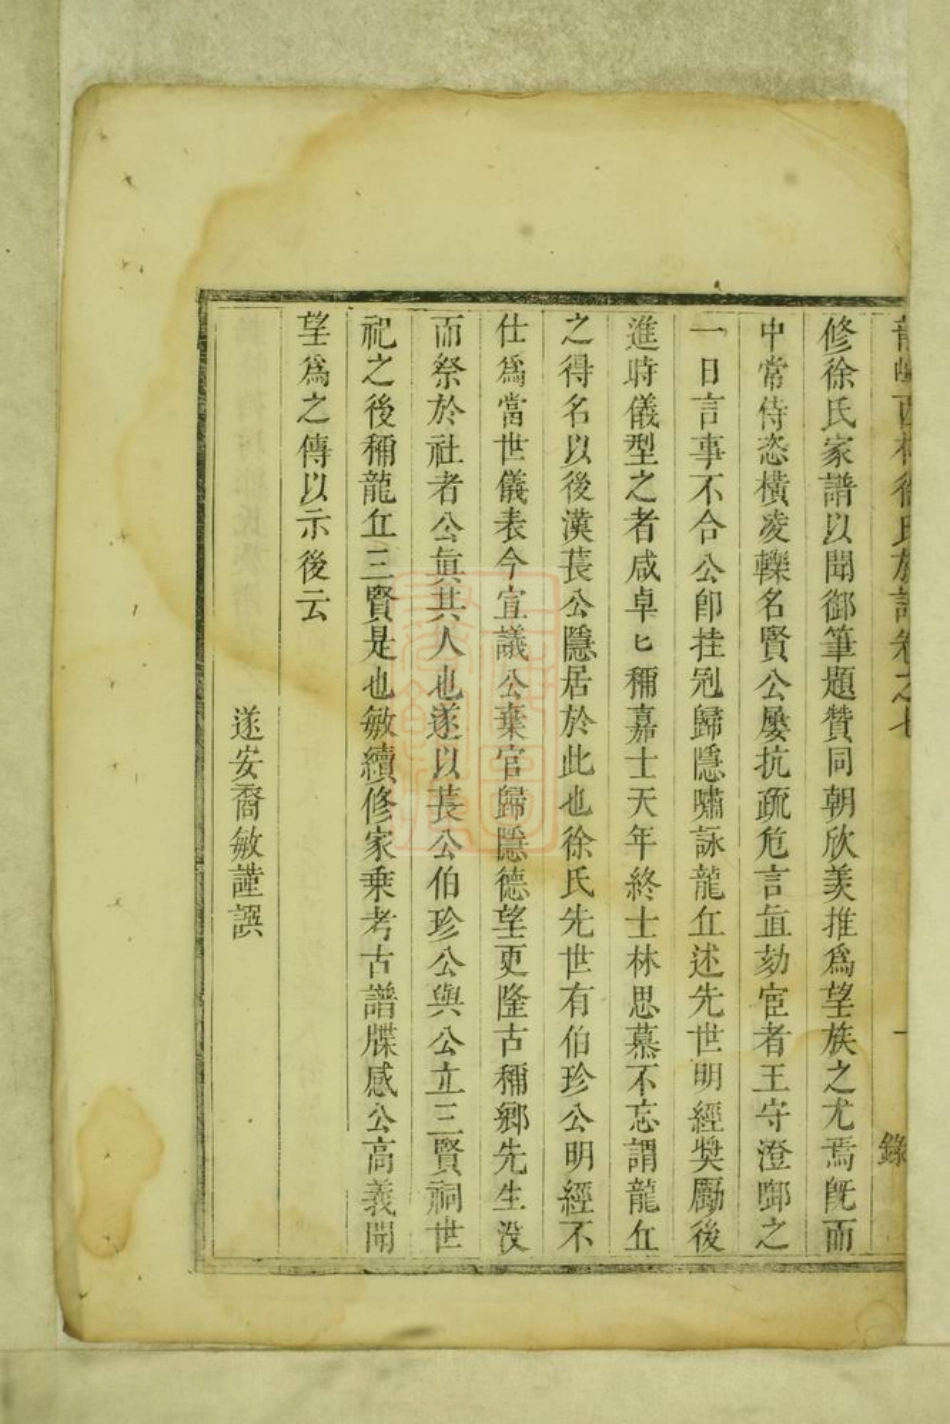 徐氏族譜卷之七 一 錄
修徐氏家譜以聞御筆題贊同朝欣羨推爲望族之尤焉旣而
中常侍恣橫凌轢名賢公屢抗疏危言直劾宦者王守澄啣之
一日言事不合公卽挂冠歸隱嘯詠龍丘述先世明經奬勵後
進時儀型之者咸卓匕稱嘉士天年終士林思慕不忘謂龍丘
之得名以後漢萇公隱居於此也徐氏先世有伯珍公明經不
仕爲當世儀表今宣議公棄官歸隱德望更隆古稱鄉先生沒
而祭於社者公眞其人也遂以萇公伯珍公與公立三賢祠世
祀之後稱龍丘三賢是也敏續修家乘考古譜牒感公高義聞
望爲之傳以示後云
遂安裔敏謹譔